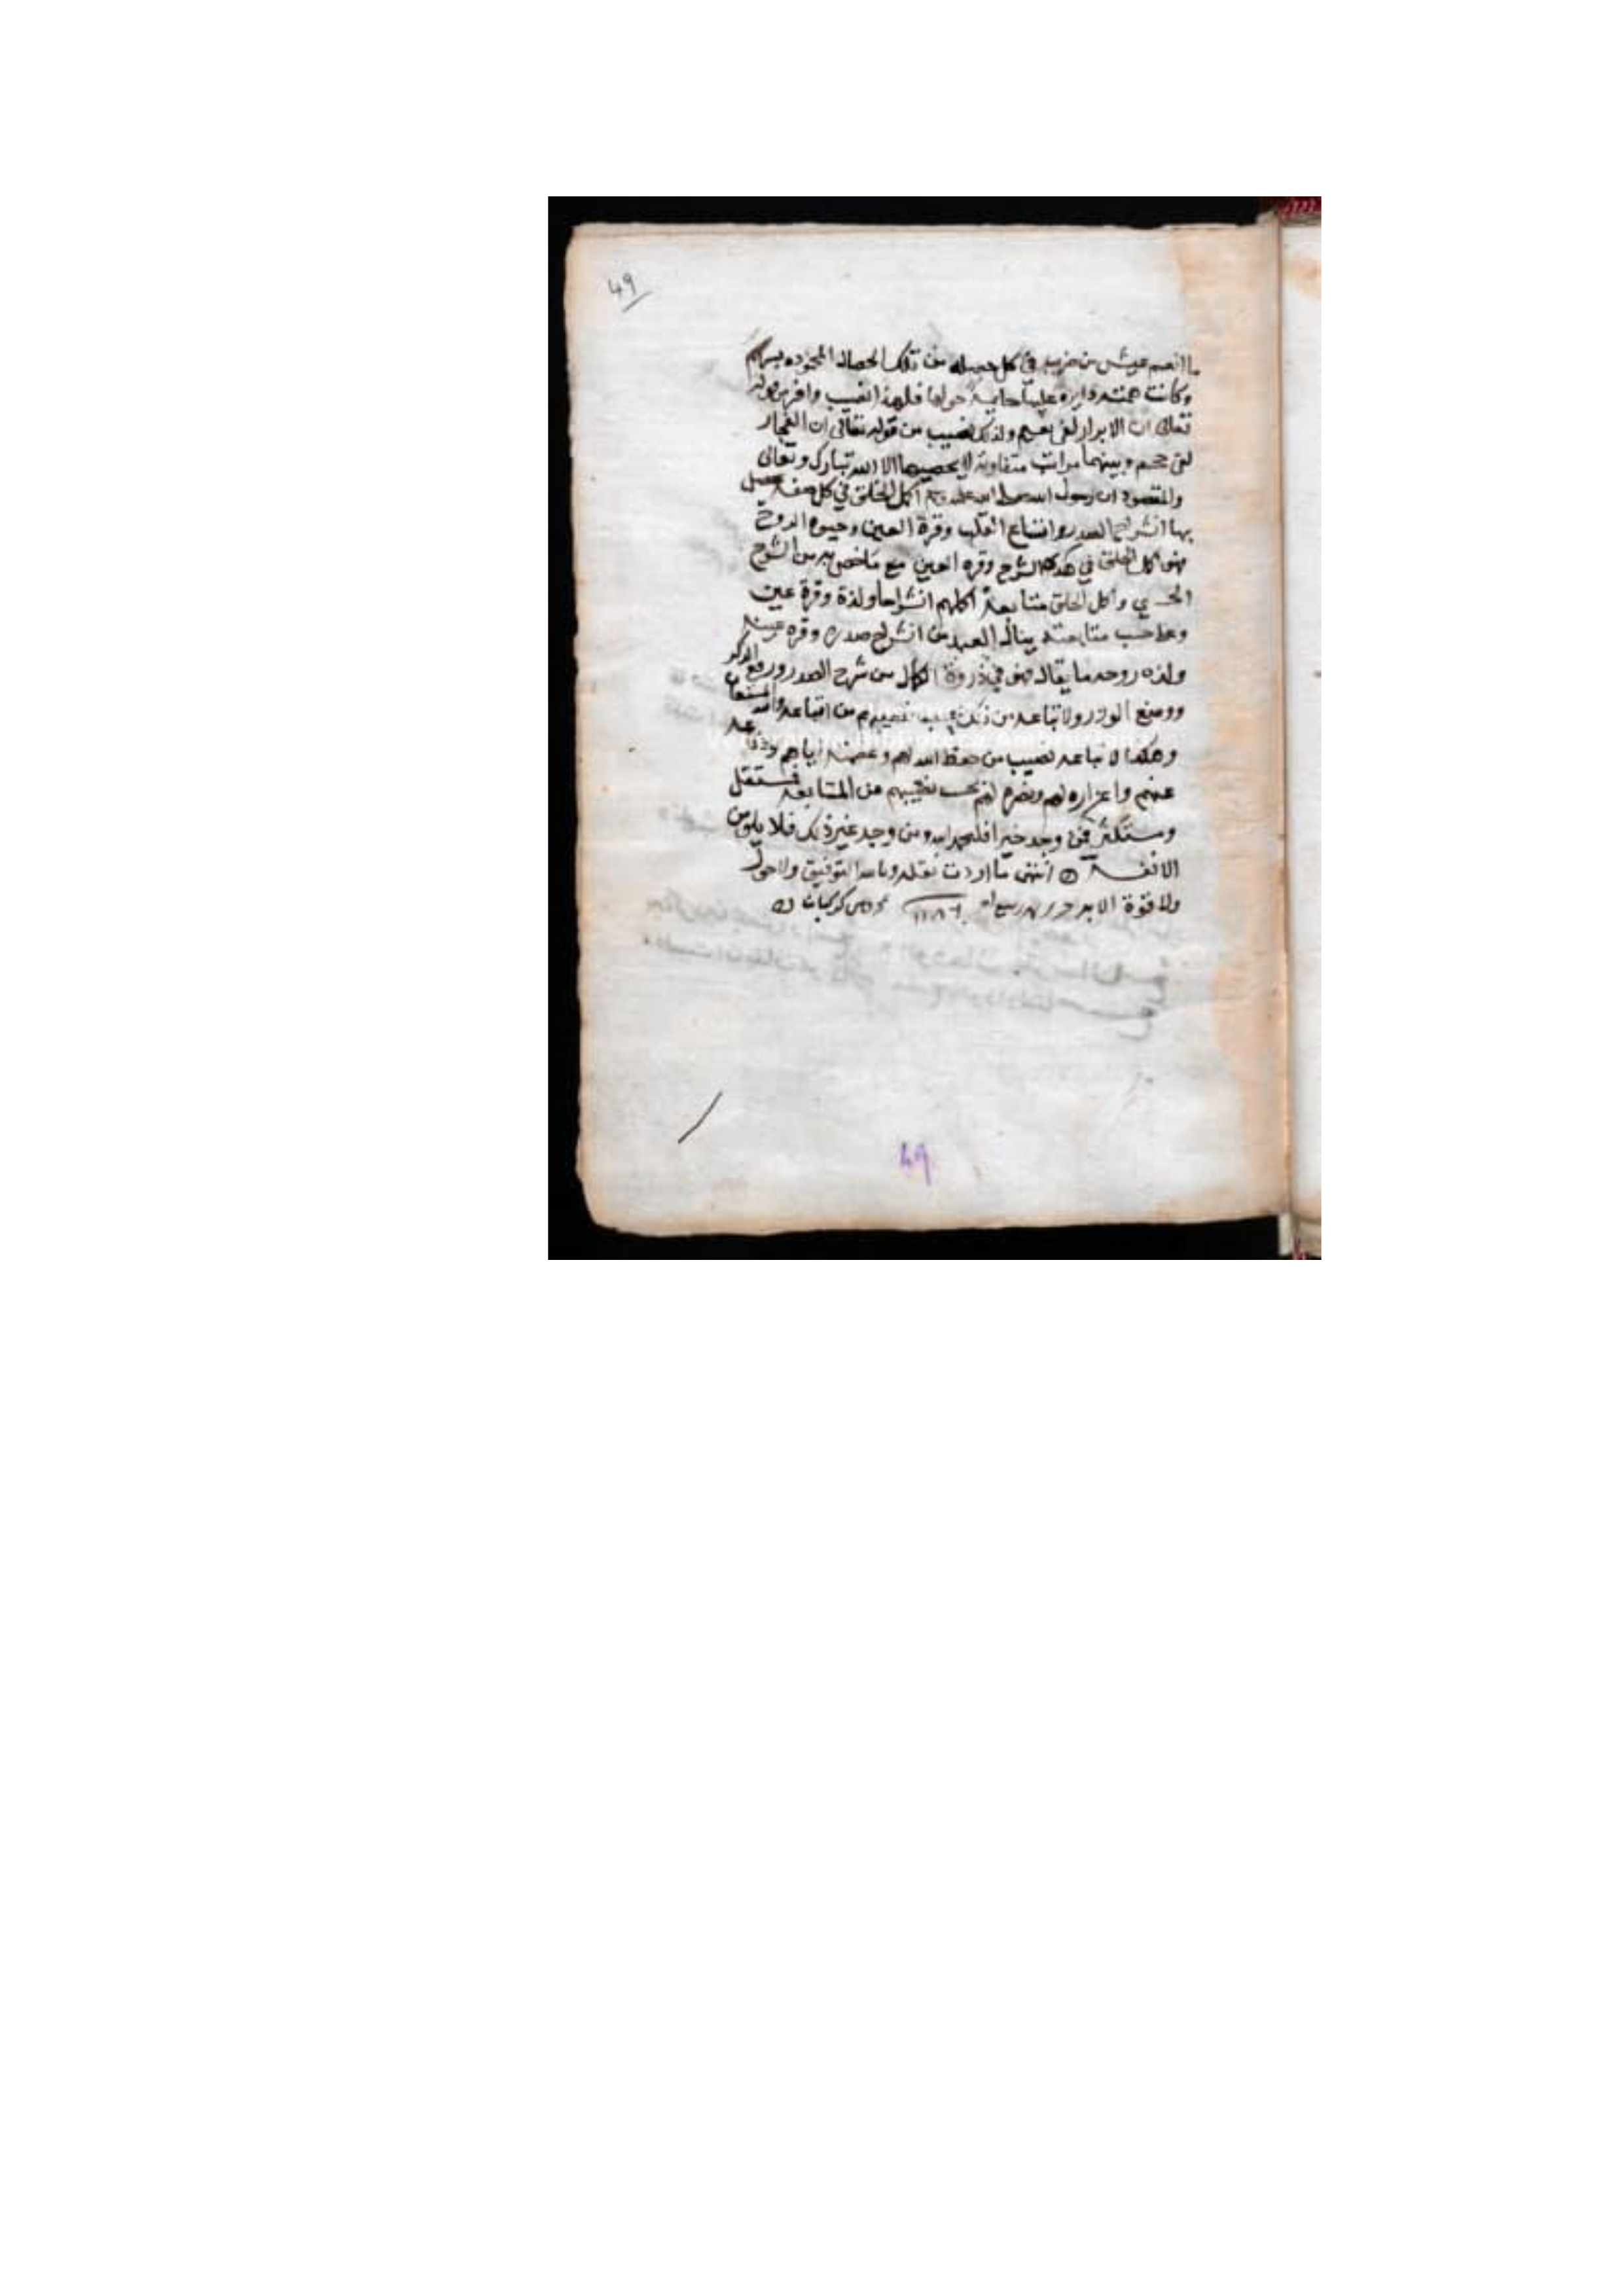 49
ما انعم عيش من ضرب في كل خصله من تلك الخصال المحموده بسهم
وكانت همته دايرة عليها حايمة حولها فلهذا نصيب وافر من قوله
تعالى ان الابرار لفي نعيم ولذلك نصيب من قوله تعالى ان الفجار
لفي جحيم وبينهما مراتب متفاوتة لا يحصيها الا الله تبارك وتعالى
والمقصود ان رسول الله صلى الله عليه وسلم اكمل الخلق في كل صفة يحصل
بها انشراح الصدر واتساع القلب وقرة العين وحيوة الروح
فهو اكمل الخلق في هذا الشرح وقره العين مع ما خص به من الشرح
الحسي واكمل الخلق متابعة اكملهم انشراحا ولذة وقرة عين
وعلى حسب متابعته ينال العبد من انشراح صدره وقره عينه
ولذه روحه ما ينال فهو في ذروة الكمال من شرح الصدر ورفع الذكر
ووضع الوزر ولاتباعه من ذلك بحسب نصيبهم من اتباعه والله المستعان
وهكذا لاتباعه نصيب من حفظ الله لهم وعصمته اياهم ودفاعه
عنهم واعزازه لهم ونصره لهم بحسب نصيبهم من المتابعة فمستقل
ومستكثر فمن وجد خيرا فليحمد الله ومن وجد غير ذلك فلا يلومن
الا نفسه انتهى ما اردت نقله وبالله التوفيق ولا حول
ولا قوة الا به ١١٨٦
49